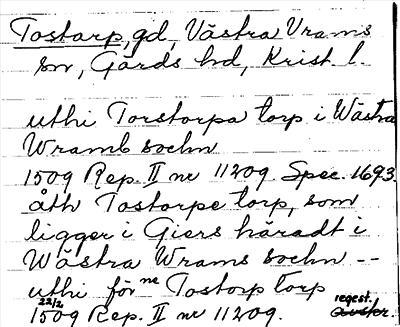 Tostarp, gd, Västra Vrams
sn, Gärds hd, Krist. l.
uthi Torstorpa torp i Wästra
Wramb sochn
1509 Rep. II nr 11209. Spec. 1693.
åth Tostorpe torp, som
ligger i Giers häradt i
Wästra Wrams sochn --
uthi för ne Tostorp torp
22/2 regest.
1509 Rep. II nr 11209.